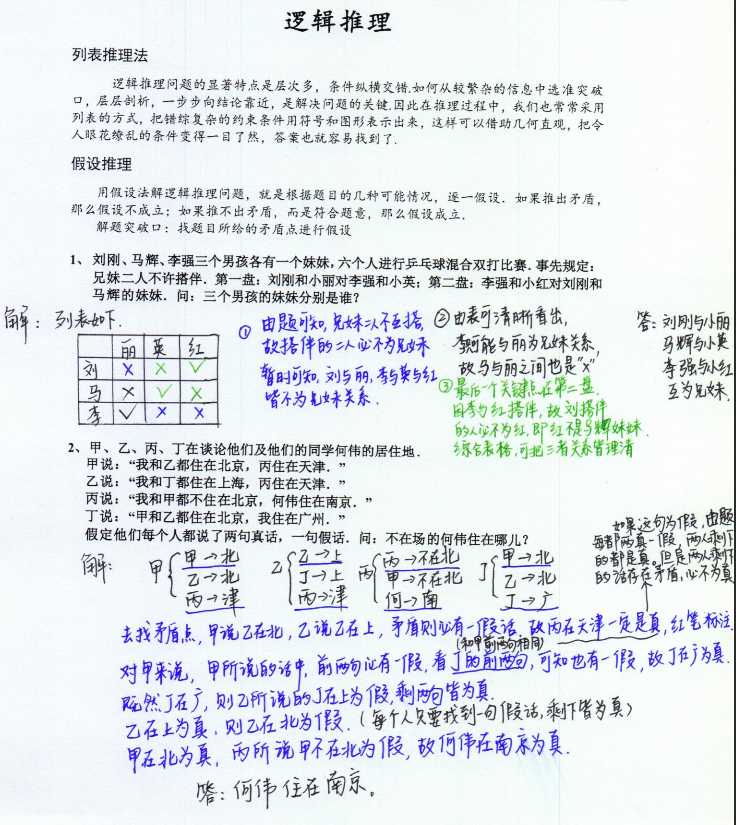 逻辑推理
列表推理法
逻辑推理问题的显著特点是层次多，条件纵横交错.如何从较繁杂的信息中选准突破
口，层层剖析，一步步向结论靠近，是解决问题的关键.因此在推理过程中，我们也常常采用
列表的方式，把错综复杂的约束条件用符号和图形表示出来，这样可以借助几何直观，把令
人眼花缭乱的条件变得一目了然，答案也就容易找到了.
假设推理
用假设法解逻辑推理问题，就是根据题目的几种可能情况，逐一假设．如果推出矛盾，
那么假设不成立；如果推不出矛盾，而是符合题意，那么假设成立．
解题突破口：找题目所给的矛盾点进行假设
1、 刘刚、马辉、李强三个男孩各有一个妹妹，六个人进行乒乓球混合双打比赛．事先规定：
兄妹二人不许搭伴．第一盘：刘刚和小丽对李强和小英；第二盘：李强和小红对刘刚和
马辉的妹妹．问：三个男孩的妹妹分别是谁？
解：列表如下．
丽 英 红
刘 × × ✓
马 × ✓ ×
李 ✓ × ×
① 由题可知，兄妹二人不互搭，
故搭伴的二人必不为兄妹
暂时可知，刘与丽，李与英与红
皆不为兄妹关系．
② 由表可清晰看出，
李可能与丽为兄妹关系
故马与丽之间也是"×"
③ 最后一个关键点在第二盘
因李与红搭伴，故刘搭伴
的人必不为红，即红不是马辉妹妹．
综合表格，可把三者关系皆理清
答：刘刚与小丽
马辉与小英
李强与小红
互为兄妹．
2、甲、乙、丙、丁在谈论他们及他们的同学何伟的居住地．
甲说：“我和乙都住在北京，丙住在天津．”
乙说：“我和丁都住在上海，丙住在天津．”
丙说：“我和甲都不住在北京，何伟住在南京．”
丁说：“甲和乙都住在北京，我住在广州．”
假定他们每个人都说了两句真话，一句假话．问：不在场的何伟住在哪儿？
如果这句为假，由题
每都两真一假，两人剩下
的都是真．但是两人剩下
的话存在矛盾，必不为真
解：
甲 甲→北 乙→北 丙→津
乙 乙→上 丁→上 丙→津
丙 丙→不在北 甲→不在北 何→南
丁 甲→北 乙→北 丁→广
去找矛盾点，甲说乙在北，乙说乙在上，矛盾则必有一假话，故丙在天津一定是真，红笔标注．
(和甲前两句相同)
对甲来说，甲所说的话中，前两句必有一假，看丁的前两句，可知也有一假，故丁在广为真．
既然丁在广，则乙所说的丁在上为假，剩两句皆为真．
乙在上为真，则乙在北为假．（每个人只要找到一句假话，剩下皆为真）
甲在北为真，丙所说甲不在北为假，故何伟在南京为真．
答：何伟住在南京。